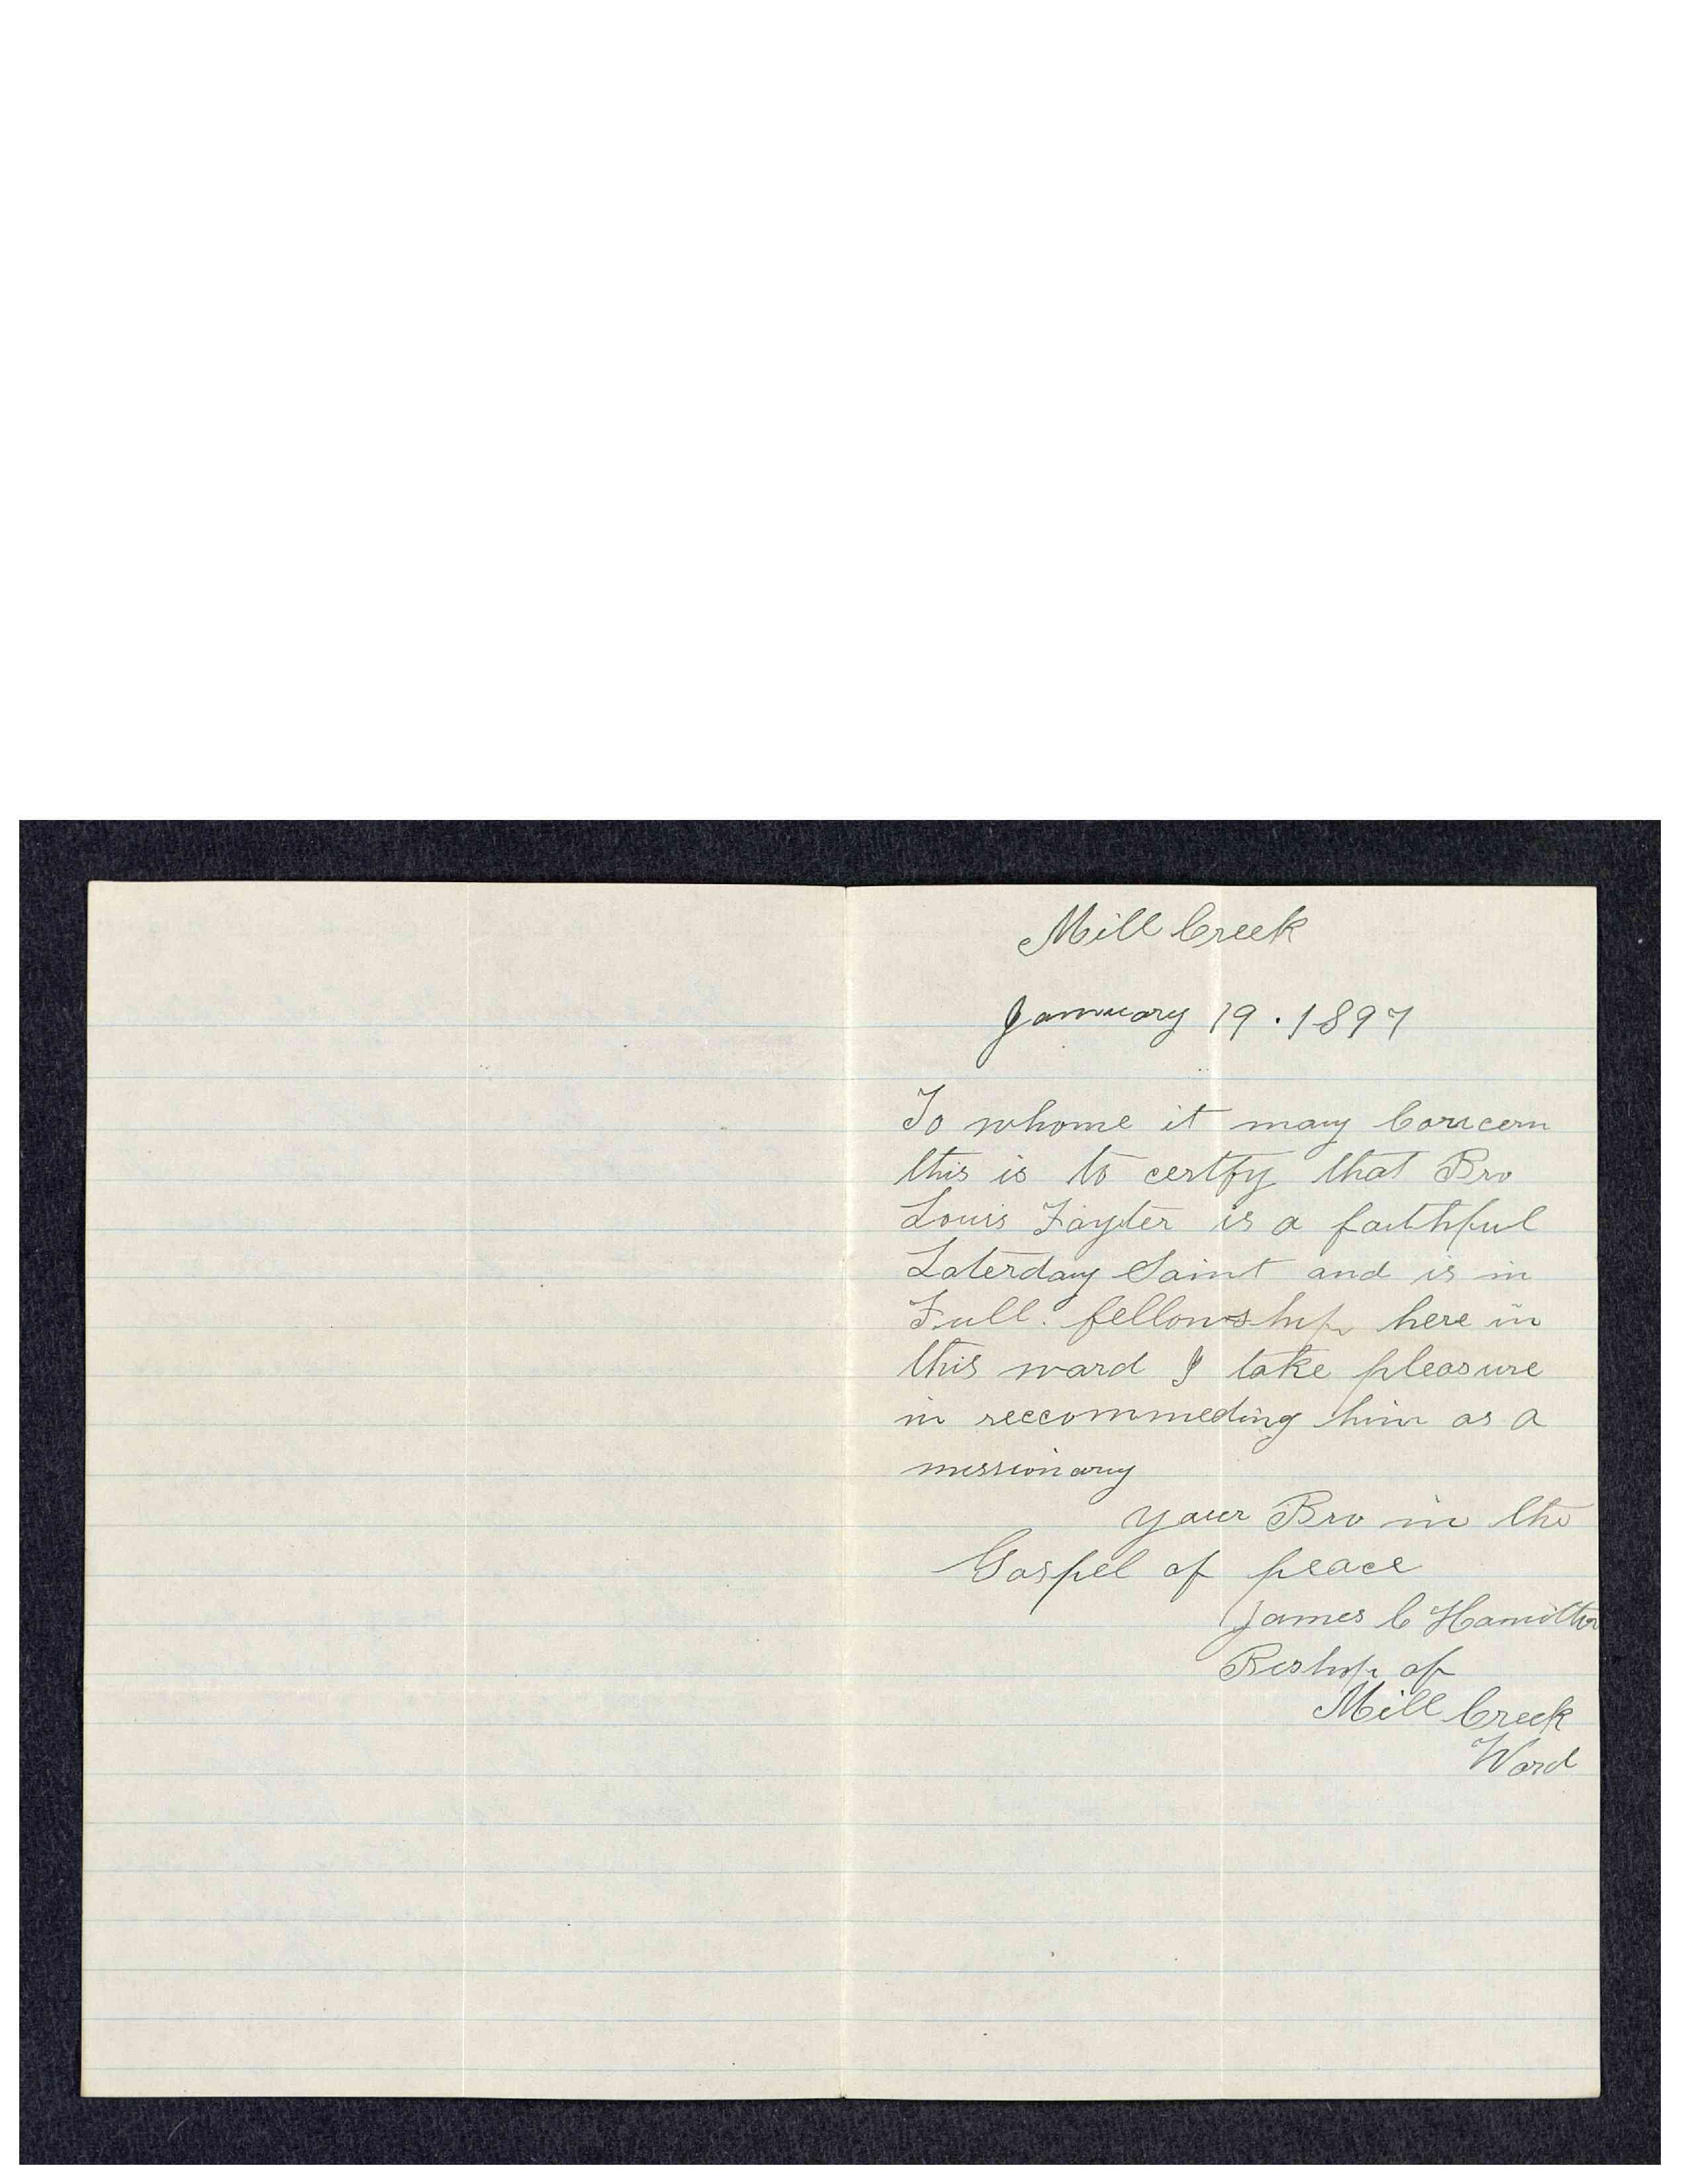 Mill Creek
January 19 . 1897
To whome it may Concern
this is to certfy that Bro
Louis is a faithful
Laterday Saint and is in
Full. fellowship here in
this ward I take pleasure
in reccommeding him as a
missionary
your Bro in the
Gospel of peace
James C Hamilton
Bishop of
Mill Creek
Ward